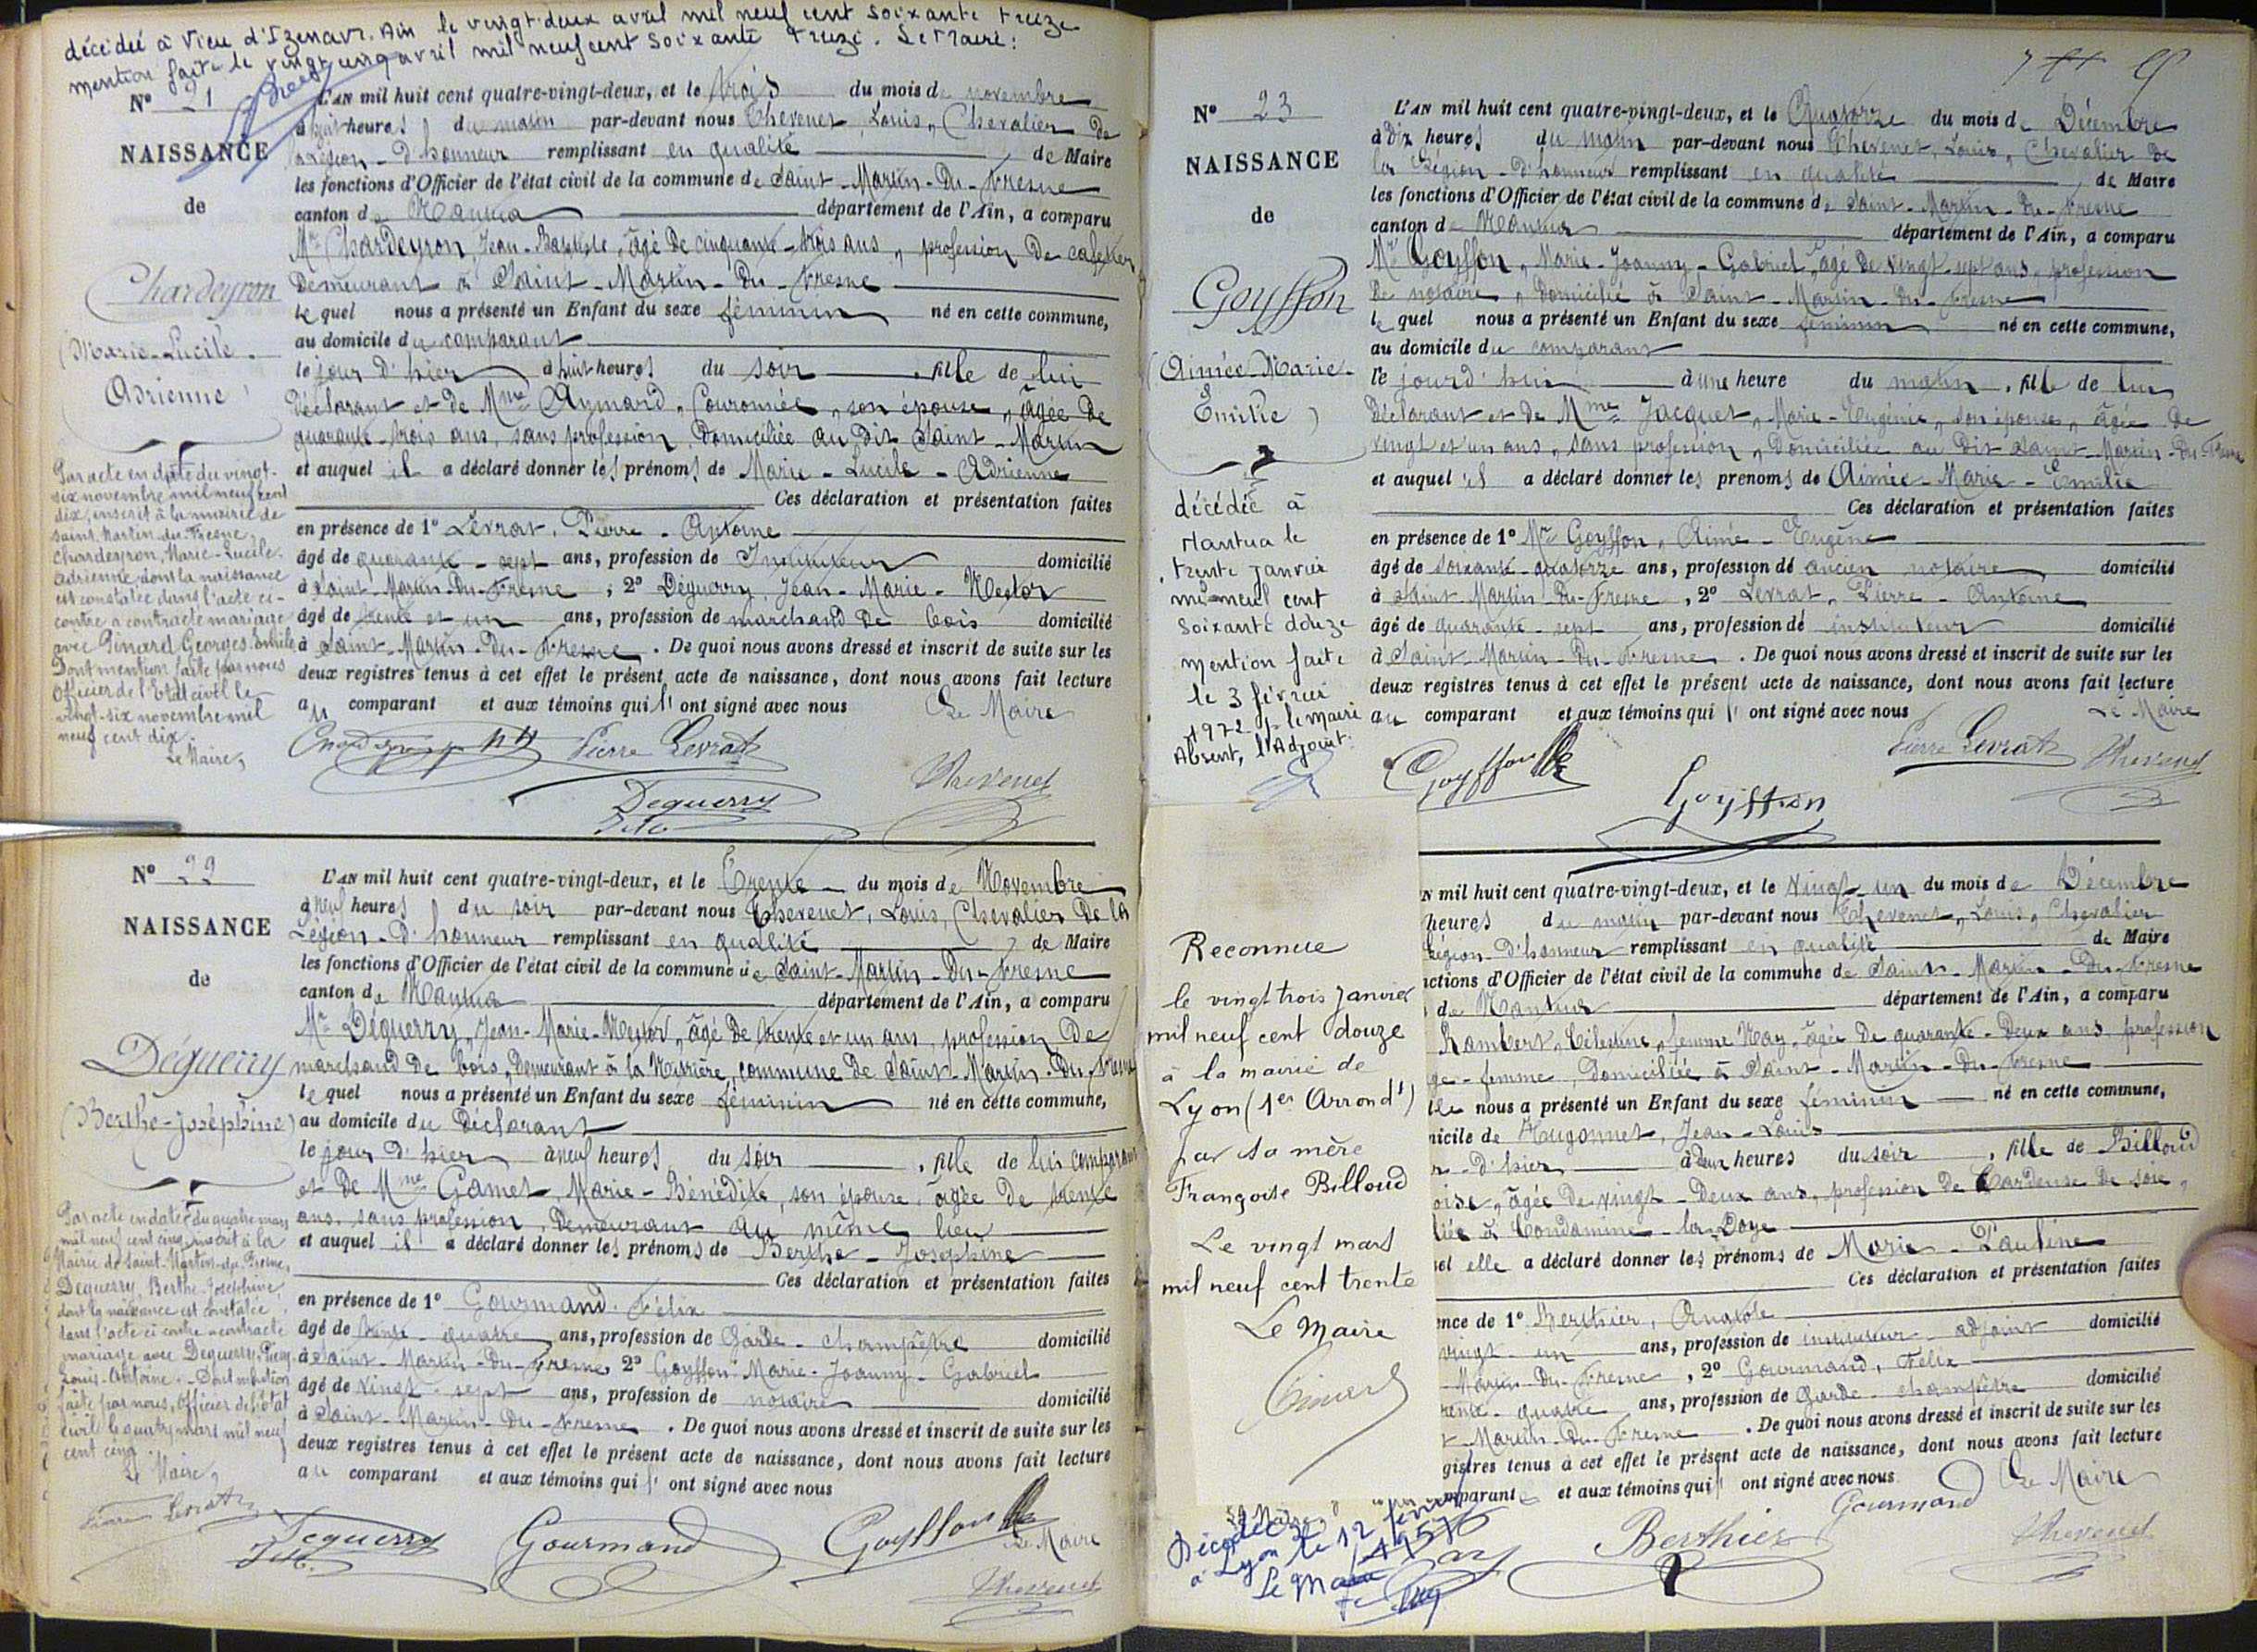 décédée à Vieu d'Izenave. Ain le vingt-deux avril mil neuf cent soixante treize
mention faite le vingt cinq avril mil neuf cent soixante treize. Le Maire:
N° 21
NAISSANCE
de
Chardeyron
(Marie-Lucile-
Adrienne)
Par acte en date du vingt-
six novembre mil neuf cent
dix, inscrit à la mairie de
Saint-Martin-du-Fresne,
Chardeyron, Marie-Lucile-
Adrienne dont la naissance
est constatée dans l'acte ci-
contre a contracté mariage
avec Pinard Georges Emile
Dont mention faite par nous
Officier de l'Etat civil le
vingt-six novembre mil
neuf cent dix.
Le Maire,
L'AN mil huit cent quatre-vingt-deux, et le trois du mois de novembre
à huit heures du matin par-devant nous Thevenet, Louis, Chevalier de
la Légion-d'honneur remplissant en qualité de Maire
les fonctions d'Officier de l'état civil de la commune de Saint-Martin-Du-Fresne
canton de Nantua département de l'Ain, a comparu
Mr Chardeyron, Jean-Baptiste, âgé de cinquante-trois ans, profession de cafetier
Demeurant à Saint-Martin-Du-Fresne
lequel nous a présenté un Enfant du sexe féminin né en cette commune,
au domicile du comparant
le jour d'hier à huit heures du soir, fille de lui
déclarant et de Mme Aymard, Couronnée, son épouse, âgée de
quarante-trois ans, sans profession, domiciliée au dit Saint-Martin
et auquel il a déclaré donner les prénoms de Marie-Lucile-Adrienne
Ces déclaration et présentation faites
en présence de 1° Levrat, Pierre-Antoine
âgé de quarante-sept ans, profession de Instituteur domicilié
à Saint-Martin-Du-Fresne ; 2° Déguerry, Jean-Marie-Nestor
âgé de trente et un ans, profession de marchand de bois domicilié
à Saint-Martin-Du-Fresne. De quoi nous avons dressé et inscrit de suite sur les
deux registres tenus à cet effet le présent acte de naissance, dont nous avons fait lecture
au comparant et aux témoins qui l' ont signé avec nous Le Maire
Pierre Levrat
Deguerry
Thevenet
N° 22
NAISSANCE
de
Déguerry
(Berthe-Joséphine)
Par acte en date du quatre mars
mil neuf cent cinq inscrit à la
Mairie de Saint-Martin-du-Fresne,
Deguerry, Berthe-Joséphine
dont la naissance est constatée
dans l'acte ci-contre a contracté
mariage avec Deguerry,
Louis-Antoine. Dont mention
faite par nous, Officier de l'état
civil le quatre mars mil neuf
cent cinq.
Le Maire,
Pierre Levrat
L'AN mil huit cent quatre-vingt-deux, et le Trente du mois de Novembre
à neuf heures du soir par-devant nous Thevenet, Louis, Chevalier De la
Légion-d'honneur remplissant en qualité de Maire
les fonctions d'Officier de l'état civil de la commune de Saint-Martin-Du-Fresne
canton de Nantua département de l'Ain, a comparu
Mr Déguerry, Jean-Marie-Nestor, âgé de trente et un ans, profession de
marchand de bois, Demeurant à la, commune de Saint-Martin-Du-Fresne
lequel nous a présenté un Enfant du sexe féminin né en cette commune,
au domicile du Déclarant
le jour d'hier à neuf heures du soir, fille de lui comparant
et De Mme Gamet, Marie-Bénédite, son épouse, âgée de trente
ans, sans profession, Demeurant au même lieu
et auquel il a déclaré donner les prénoms de Berthe-Joséphine
Ces déclaration et présentation faites
en présence de 1° Gourmand, Félix
âgé de trente-quatre ans, profession de Garde-champêtre domicilié
à Saint-Martin-Du-Fresne, 2° Goyffon Marie-Joanny-Gabriel
âgé de vingt-sept ans, profession de notaire domicilié
à Saint-Martin-Du-Fresne. De quoi nous avons dressé et inscrit de suite sur les
deux registres tenus à cet effet le présent acte de naissance, dont nous avons fait lecture
au comparant et aux témoins qui l' ont signé avec nous
Deguerry Gourmand Goyffon Le Maire
Thevenet
N° 23
NAISSANCE
de
Goyffon
(Aimée-Marie-
Emilie)
décédée à
Nantua le
trente janvier
mil neuf cent
soixante douze
mention faite
le 3 février
1972 p le maire
Absent, l'Adjoint.
L'AN mil huit cent quatre-vingt-deux, et le Quatorze du mois de Décembre
à dix heures du matin par-devant nous Thevenet, Louis, Chevalier de
la Légion-d'honneur remplissant en qualité de Maire
les fonctions d'Officier de l'état civil de la commune de Saint-Martin-Du-Fresne
canton de Nantua département de l'Ain, a comparu
Mr Goyffon, Marie-Joanny-Gabriel, âgé de vingt-sept ans, profession
de notaire, domicilié à Saint-Martin-du-Fresne
lequel nous a présenté un Enfant du sexe féminin né en cette commune,
au domicile du comparant
le jourd'hui à une heure du matin, fille de lui
Déclarant et de Mme Jacquet, Marie-Eugénie, son épouse, âgée de
vingt et un ans, sans profession, Domiciliée au dit Saint-Martin-Du-Fresne
et auquel il a déclaré donner les prénoms de Aimée-Marie-Emilie
Ces déclaration et présentation faites
en présence de 1° Mr Goyffon, Aimé-Eugène
âgé de soixante-quatorze ans, profession de ancien notaire domicilié
à Saint-Martin-Du-Fresne, 2° Levrat, Pierre-Antoine
âgé de quarante-sept ans, profession de instituteur domicilié
à Saint-Martin-Du-Fresne. De quoi nous avons dressé et inscrit de suite sur les
deux registres tenus à cet effet le présent acte de naissance, dont nous avons fait lecture
au comparant et aux témoins qui l' ont signé avec nous Le Maire
Goyffon Goyffon Pierre Levrat Thevenet
Reconnue
le vingt trois Janvier
mil neuf cent douze
à la mairie de
Lyon (1er Arrondt)
par sa mère
Françoise Billoud
Le vingt mars
mil neuf cent trente
Le Maire
Décédée
à Lyon le 12 février
1957
Le Maire
N mil huit cent quatre-vingt-deux, et le Vingt-un du mois de Décembre
heures du matin par-devant nous Thevenet, Louis, Chevalier
Légion-D'honneur remplissant en qualité de Maire
nctions d'Officier de l'état civil de la commune de Saint-Martin-Du-Fresne
de Nantua département de l'Ain, a comparu
Rambert, Célestine, femme Nay, âgée De quarante-Deux ans, profession
ge-femme, Domiciliée à Saint-Martin-Du-Fresne
lle nous a présenté un Enfant du sexe féminin né en cette commune,
icile de Hugonnet, Jean-Louis
r-d'hier à deux heures du soir, fille de Billoud
oise, âgée De vingt-Deux ans, profession de Cardeuse de soie,
liée à Condamine-la-Doye
uel elle a déclaré donner les prénoms de Marie-Pauline
Ces déclaration et présentation faites
ence de 1° Berthier, Anatole
vingt-un ans, profession de instituteur-adjoint domicilié
Martin-Du-Fresne, 2° Gourmand, Félix
rente-quatre ans, profession de Garde-champêtre domicilié
t-Martin-Du-Fresne. De quoi nous avons dressé et inscrit de suite sur les
gistres tenus à cet effet le présent acte de naissance, dont nous avons fait lecture
mparante et aux témoins qui l' ont signé avec nous Le Maire
Berthier Gourmand Thevenet